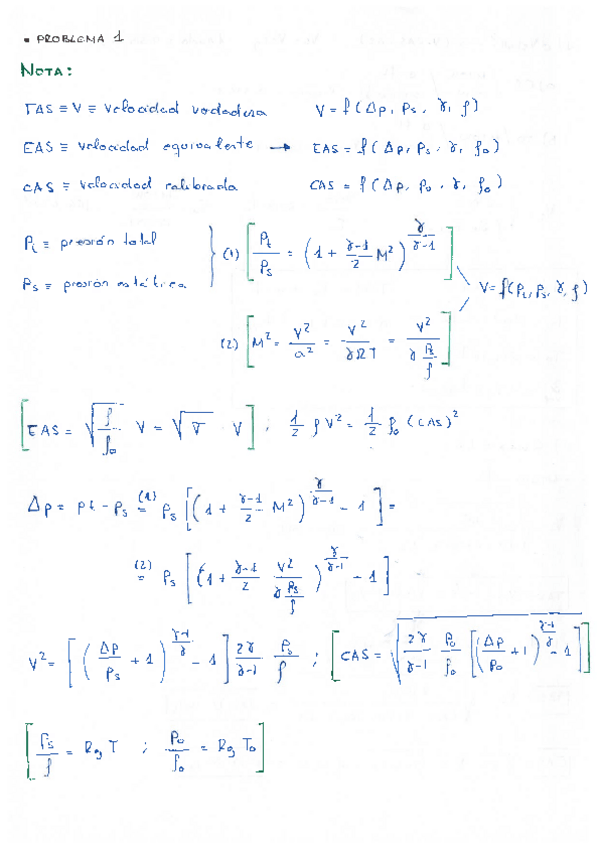 • PROBLEMA 1
NOTA:
TAS ≡ V ≡ velocidad verdadera V = f(Δp, Ps, γ, ρ)
EAS ≡ velocidad equivalente → EAS = f(Δp, Ps, γ, ρ₀)
CAS ≡ velocidad calibrada CAS = f(Δp, P₀, γ, ρ₀)
Pt ≡ presión total
Ps ≡ presión estática
(1) [Pt/Ps = (1 + (γ-1)/2 M²)^(γ/(γ-1))]
V = f(Pt, Ps, γ, ρ)
(2) [M² = V²/a² = V²/(γRT) = V²/(γ Ps/ρ)]
[EAS = √(ρ/ρ₀) V = √σ · V] ; 1/2 ρV² = 1/2 ρ₀ (EAS)²
Δp = pt - ps =(1) Ps [(1 + (γ-1)/2 M²)^(γ/(γ-1)) - 1] =
=(2) Ps [(1 + (γ-1)/2 V²/(γ Ps/ρ))^(γ/(γ-1)) - 1]
V² = [(Δp/Ps + 1)^((γ-1)/γ) - 1] 2γ/(γ-1) Ps/ρ ; [CAS = √(2γ/(γ-1) P₀/ρ₀ [(Δp/P₀ + 1)^((γ-1)/γ) - 1])]
[Ps/ρ = Rg T ; P₀/ρ₀ = Rg T₀]